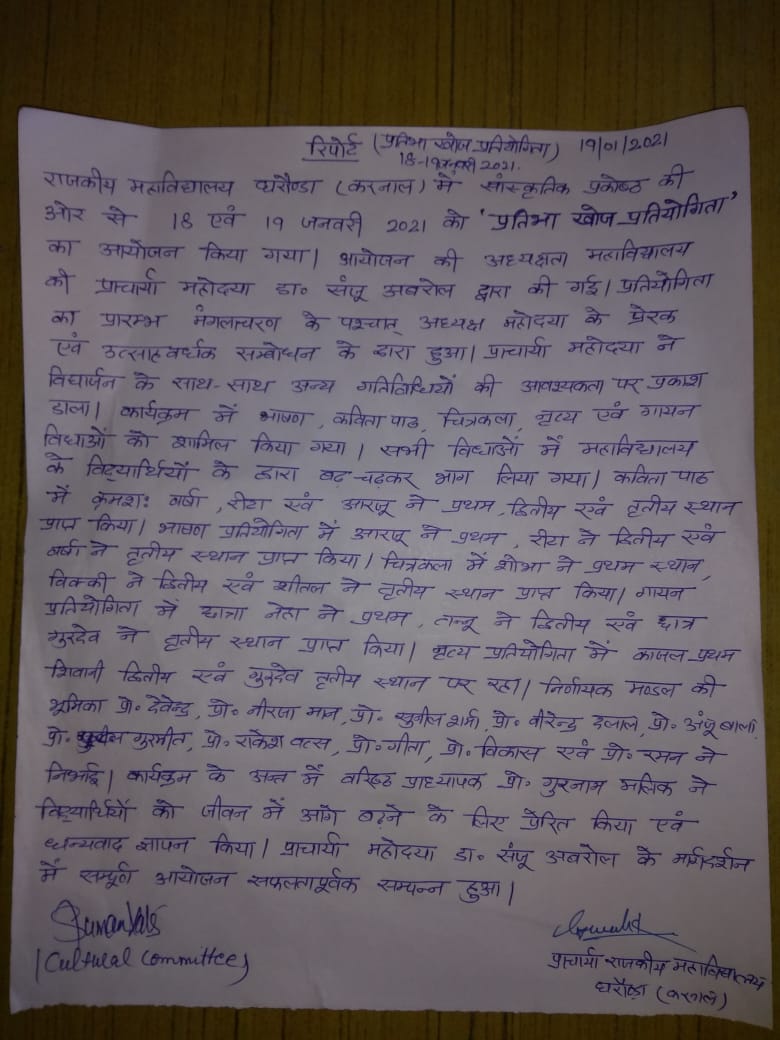 रिपोर्ट (प्रतिभा खोज प्रतियोगिता) 19/01/2021
18-19 जनवरी 2021.
राजकीय महाविद्यालय घरौण्डा (करनाल) में सांस्कृतिक प्रकोष्ठ की
ओर से 18 एवं 19 जनवरी 2021 को 'प्रतिभा खोज प्रतियोगिता'
का आयोजन किया गया। आयोजन की अध्यक्षता महाविद्यालय
की प्राचार्या महोदया डा॰ संजू अबरोल द्वारा की गई। प्रतियोगिता
का प्रारम्भ मंगलाचरण के पश्चात् अध्यक्ष महोदया के प्रेरक
एवं उत्साहवर्धक सम्बोधन के द्वारा हुआ। प्राचार्या महोदया ने
विद्यार्जन के साथ-साथ अन्य गतिविधियों की आवश्यकता पर प्रकाश
डाला। कार्यक्रम में भाषण, कविता पाठ, चित्रकला, नृत्य एवं गायन
विधाओं को शामिल किया गया। सभी विधाओं में महाविद्यालय
के विद्यार्थियों के द्वारा बढ़-चढ़कर भाग लिया गया। कविता पाठ
में क्रमशः वर्षा, रीटा एवं आरजू ने प्रथम, द्वितीय एवं तृतीय स्थान
प्राप्त किया। भाषण प्रतियोगिता में आरजू ने प्रथम, रीटा ने द्वितीय एवं
वर्षा ने तृतीय स्थान प्राप्त किया। चित्रकला में शोभा ने प्रथम स्थान,
विक्की ने द्वितीय एवं शीतल ने तृतीय स्थान प्राप्त किया। गायन
प्रतियोगिता में छात्रा नेहा ने प्रथम, तन्नू ने द्वितीय एवं छात्र
गुरदेव ने तृतीय स्थान प्राप्त किया। नृत्य प्रतियोगिता में काजल प्रथम
शिवानी द्वितीय एवं गुरुदेव तृतीय स्थान पर रहा। निर्णायक मण्डल की
भूमिका प्रो॰ देवेन्द्र, प्रो॰ नीरजा मान, प्रो॰ सुनील शर्मा, प्रो॰ वीरेन्द्र दलाल, प्रो॰ अंजू बाला,
प्रो॰ गुरमीत, प्रो॰ राकेश वत्स, प्रो॰ गीता, प्रो॰ विकास एवं प्रो॰ रमन ने
निभाई। कार्यक्रम के अन्त में वरिष्ठ प्राध्यापक प्रो॰ गुरनाम मलिक ने
विद्यार्थियों को जीवन में आगे बढ़ने के लिए प्रेरित किया एवं
धन्यवाद ज्ञापन किया। प्राचार्या महोदया डा॰ संजू अबरोल के मार्गदर्शन
में सम्पूर्ण आयोजन सफलतापूर्वक सम्पन्न हुआ।
(Cultural Committee)
प्राचार्या राजकीय महाविद्यालय
घरौण्डा (करनाल)